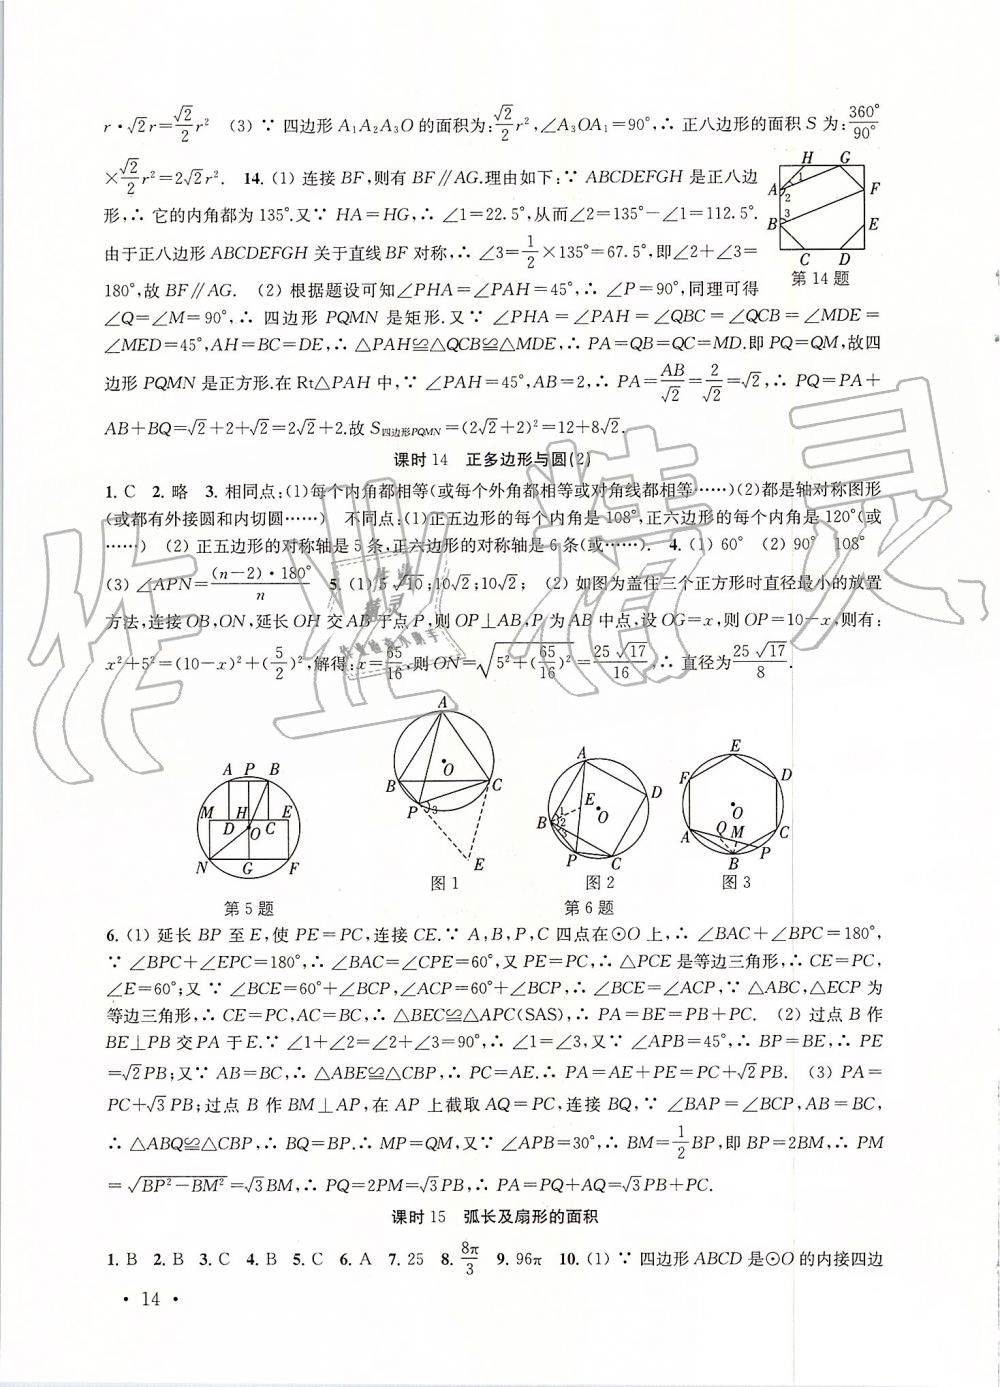 r·√2r=√2/2r² (3) ∵ 四边形 A₁A₂A₃O 的面积为:√2/2r²,∠A₃OA₁=90°,∴ 正八边形的面积 S 为:360°/90°
×√2/2r²=2√2r². 14. (1) 连接 BF,则有 BF∥AG.理由如下:∵ ABCDEFGH 是正八边
形,∴ 它的内角都为 135°.又∵ HA=HG,∴ ∠1=22.5°,从而∠2=135°-∠1=112.5°.
由于正八边形 ABCDEFGH 关于直线 BF 对称,∴ ∠3=1/2×135°=67.5°,即∠2+∠3=
180°,故 BF∥AG. (2) 根据题设可知∠PHA=∠PAH=45°,∴ ∠P=90°,同理可得
H G
A 1 2 F
B 3 E
C D
第14题
∠Q=∠M=90°,∴ 四边形 PQMN 是矩形.又∵ ∠PHA=∠PAH=∠QBC=∠QCB=∠MDE=
∠MED=45°,AH=BC=DE,∴ △PAH≌△QCB≌△MDE,∴ PA=QB=QC=MD.即 PQ=QM,故四
边形 PQMN 是正方形.在 Rt△PAH 中,∵ ∠PAH=45°,AB=2,∴ PA=AB/√2=2/√2=√2,∴ PQ=PA+
AB+BQ=√2+2+√2=2√2+2.故 S四边形PQMN=(2√2+2)²=12+8√2.
课时 14 正多边形与圆(2)
1. C 2. 略 3. 相同点:(1)每个内角都相等(或每个外角都相等或对角线都相等……)(2)都是轴对称图形
(或都有外接圆和内切圆……) 不同点:(1)正五边形的每个内角是 108°,正六边形的每个内角是 120°(或
……) (2) 正五边形的对称轴是 5 条,正六边形的对称轴是 6 条(或……). 4. (1) 60° (2) 90° 108°
(3) ∠APN=(n-2)·180°/n 5. (1) 5√10;10√2;10√2; (2) 如图为盖住三个正方形时直径最小的放置
方法,连接 OB,ON,延长 OH 交 AB 于点 P,则 OP⊥AB,P 为 AB 中点,设 OG=x,则 OP=10-x,则有:
x²+5²=(10-x)²+(5/2)²,解得:x=65/16,则 ON=√(5²+(65/16)²)=25√17/16,∴ 直径为25√17/8.
A P B
M H E
D O C
N G F
第5题
A
O
B C
P 3
E
图1
A
D
E O
B 1 2 3
P C
图2
第6题
E
F D
O
A Q M C
B P
图3
6. (1) 延长 BP 至 E,使 PE=PC,连接 CE.∵ A,B,P,C 四点在⊙O 上,∴ ∠BAC+∠BPC=180°,
∵ ∠BPC+∠EPC=180°,∴ ∠BAC=∠CPE=60°,又 PE=PC,∴ △PCE 是等边三角形,∴ CE=PC,
∠E=60°;又∵ ∠BCE=60°+∠BCP,∠ACP=60°+∠BCP,∴ ∠BCE=∠ACP,∵ △ABC,△ECP 为
等边三角形,∴ CE=PC,AC=BC,∴ △BEC≌△APC(SAS),∴ PA=BE=PB+PC. (2) 过点 B 作
BE⊥PB 交 PA 于 E.∵ ∠1+∠2=∠2+∠3=90°,∴ ∠1=∠3,又∵ ∠APB=45°,∴ BP=BE,∴ PE
=√2PB;又∵ AB=BC,∴ △ABE≌△CBP,∴ PC=AE.∴ PA=AE+PE=PC+√2PB. (3) PA=
PC+√3PB;过点 B 作 BM⊥AP,在 AP 上截取 AQ=PC,连接 BQ,∵ ∠BAP=∠BCP,AB=BC,
∴ △ABQ≌△CBP,∴ BQ=BP.∴ MP=QM,又∵ ∠APB=30°,∴ BM=1/2BP,即 BP=2BM,∴ PM
=√(BP²-BM²)=√3BM,∴ PQ=2PM=√3PB,∴ PA=PQ+AQ=√3PB+PC.
课时 15 弧长及扇形的面积
1. B 2. B 3. C 4. B 5. C 6. A 7. 25 8. 8π/3 9. 96π 10. (1) ∵ 四边形 ABCD 是⊙O 的内接四边
· 14 ·
作业精灵